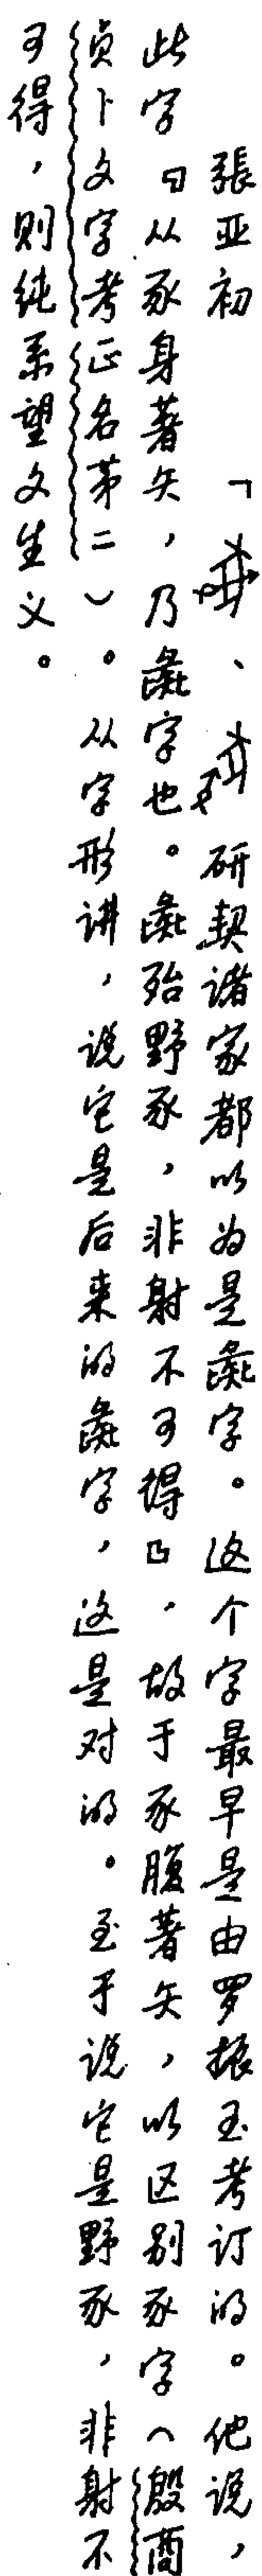 張亚初 「、研契諸家都以为是彘字。这个字最早是由罗振玉考订的。他说，
此字『从豕身著矢，乃彘字也。彘殆野豕，非射不可得』，故于豕腹著矢，以区别豕字（殷商
贞卜文字考正名第二）。从字形讲，说它是后来的彘字，这是对的。至于说它是野豕，非射不
可得，则纯系望文生义。